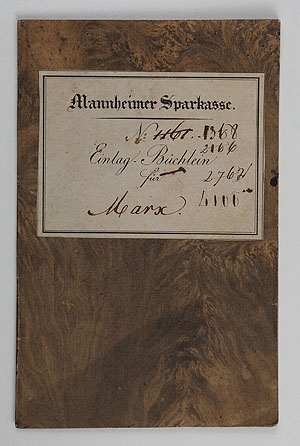 Mannheimer Sparkasse.
No. 1368
2166
Einlag-Büchlein
für 2762
Marx. 4100